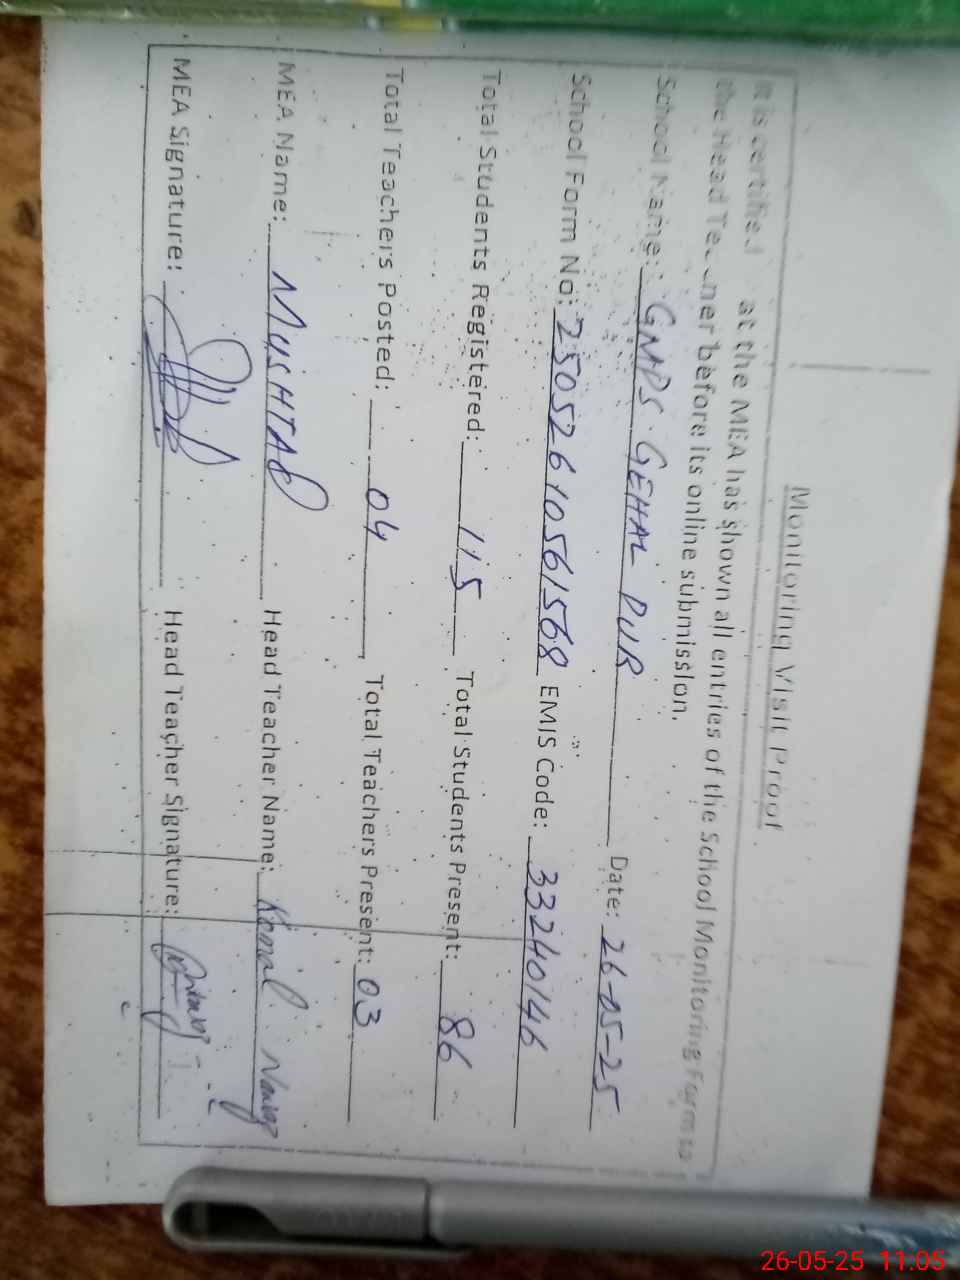 Monitoring Visit Proof
It is certified at the MEA has shown all entries of the School Monitoring Form to
the Head Teacher before its online submission.
School Name: GMPS. GEHAL PUR Date: 26-05-25
School Form No: 25052610561568 EMIS Code: 33240146
Total Students Registered: 115 Total Students Present: 86
Total Teachers Posted: 04 Total Teachers Present: 03
MEA Name: MUSHTAQ Head Teacher Name: Nawaz
MEA Signature: Head Teacher Signature:
26-05-25 11:05